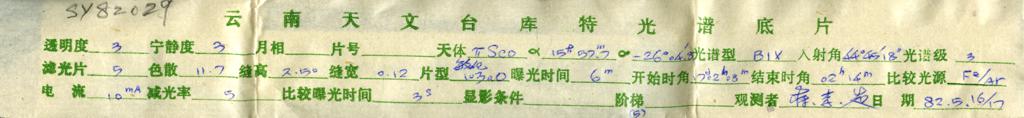 SY82029
云南天文台库特光谱底片
透明度 3 宁静度 3 月相 片号 天体 π Sco α 15ʰ 57ᵐ.7 α -26° 光谱型 B1V 入射角 光谱级 3
滤光片 5 色散 11.7 缝高 2.50 缝宽 0.12 片型 103aO 曝光时间 6ᵐ 开始时角 结束时角 02ʰ 14ᵐ 比较光源 Fe/Ar
电流 10mA 减光率 5 比较曝光时间 3ˢ 显影条件 阶梯 观测者 日期 82.5.16/17
(5)